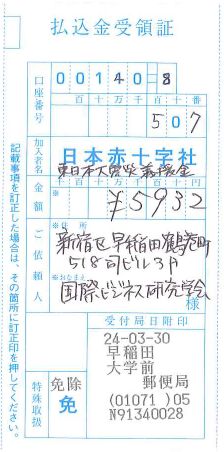 払込金受領証
口座番号
00140-8
百十万千百十番
507
加入者名
日本赤十字社
東日本大震災義援金
金額
千百十万千百十円
¥5932
ご依頼人
※ご住所
新宿区早稲田鶴巻町
518司ビル3F
※おなまえ
国際ビジネス研究学会
様
受付局日附印
24-03-30
早稲田
大学前
郵便局
(01071)05
N91340028
特殊取扱
免除
免
記載事項を訂正した場合は、その箇所に訂正印を押してください。